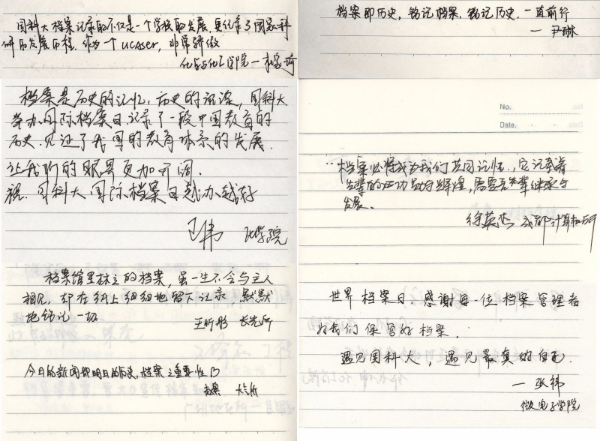 国科大档案记录的不仅是一个学校的发展,更代表了国家科
研的发展历程.作为一个UCASer,非常骄傲
化学与化工学院一
档案是历史的记忆,历史的记录,国科大
举办国际档案日记录了一段中国教育的
历史,见证了我国的教育体系的发展.
让我们的眼界更加开阔.
祝.国科大国际档案日越办越好
王伟 化学院
档案馆里林立的档案,虽一生不会与主人
相见,却在纸上细细地留下记录,默默
地铭记一切
王昕彤 长光所
今日的新闻即明日的历史,档案之重要性
大气所
档案即历史,铭记档案,铭记历史,一直前行
一尹琳
No.
Date.
档案必将成为我们共同记忆,它记录着
先辈的成功与辉煌,需要吾辈继承与
发展.
徐英杰 成都计算机所
世界档案日,感谢每一位档案管理者
为我们保管好档案.
遇见国科大,遇见最真的自己.
一 祎
微电子学院